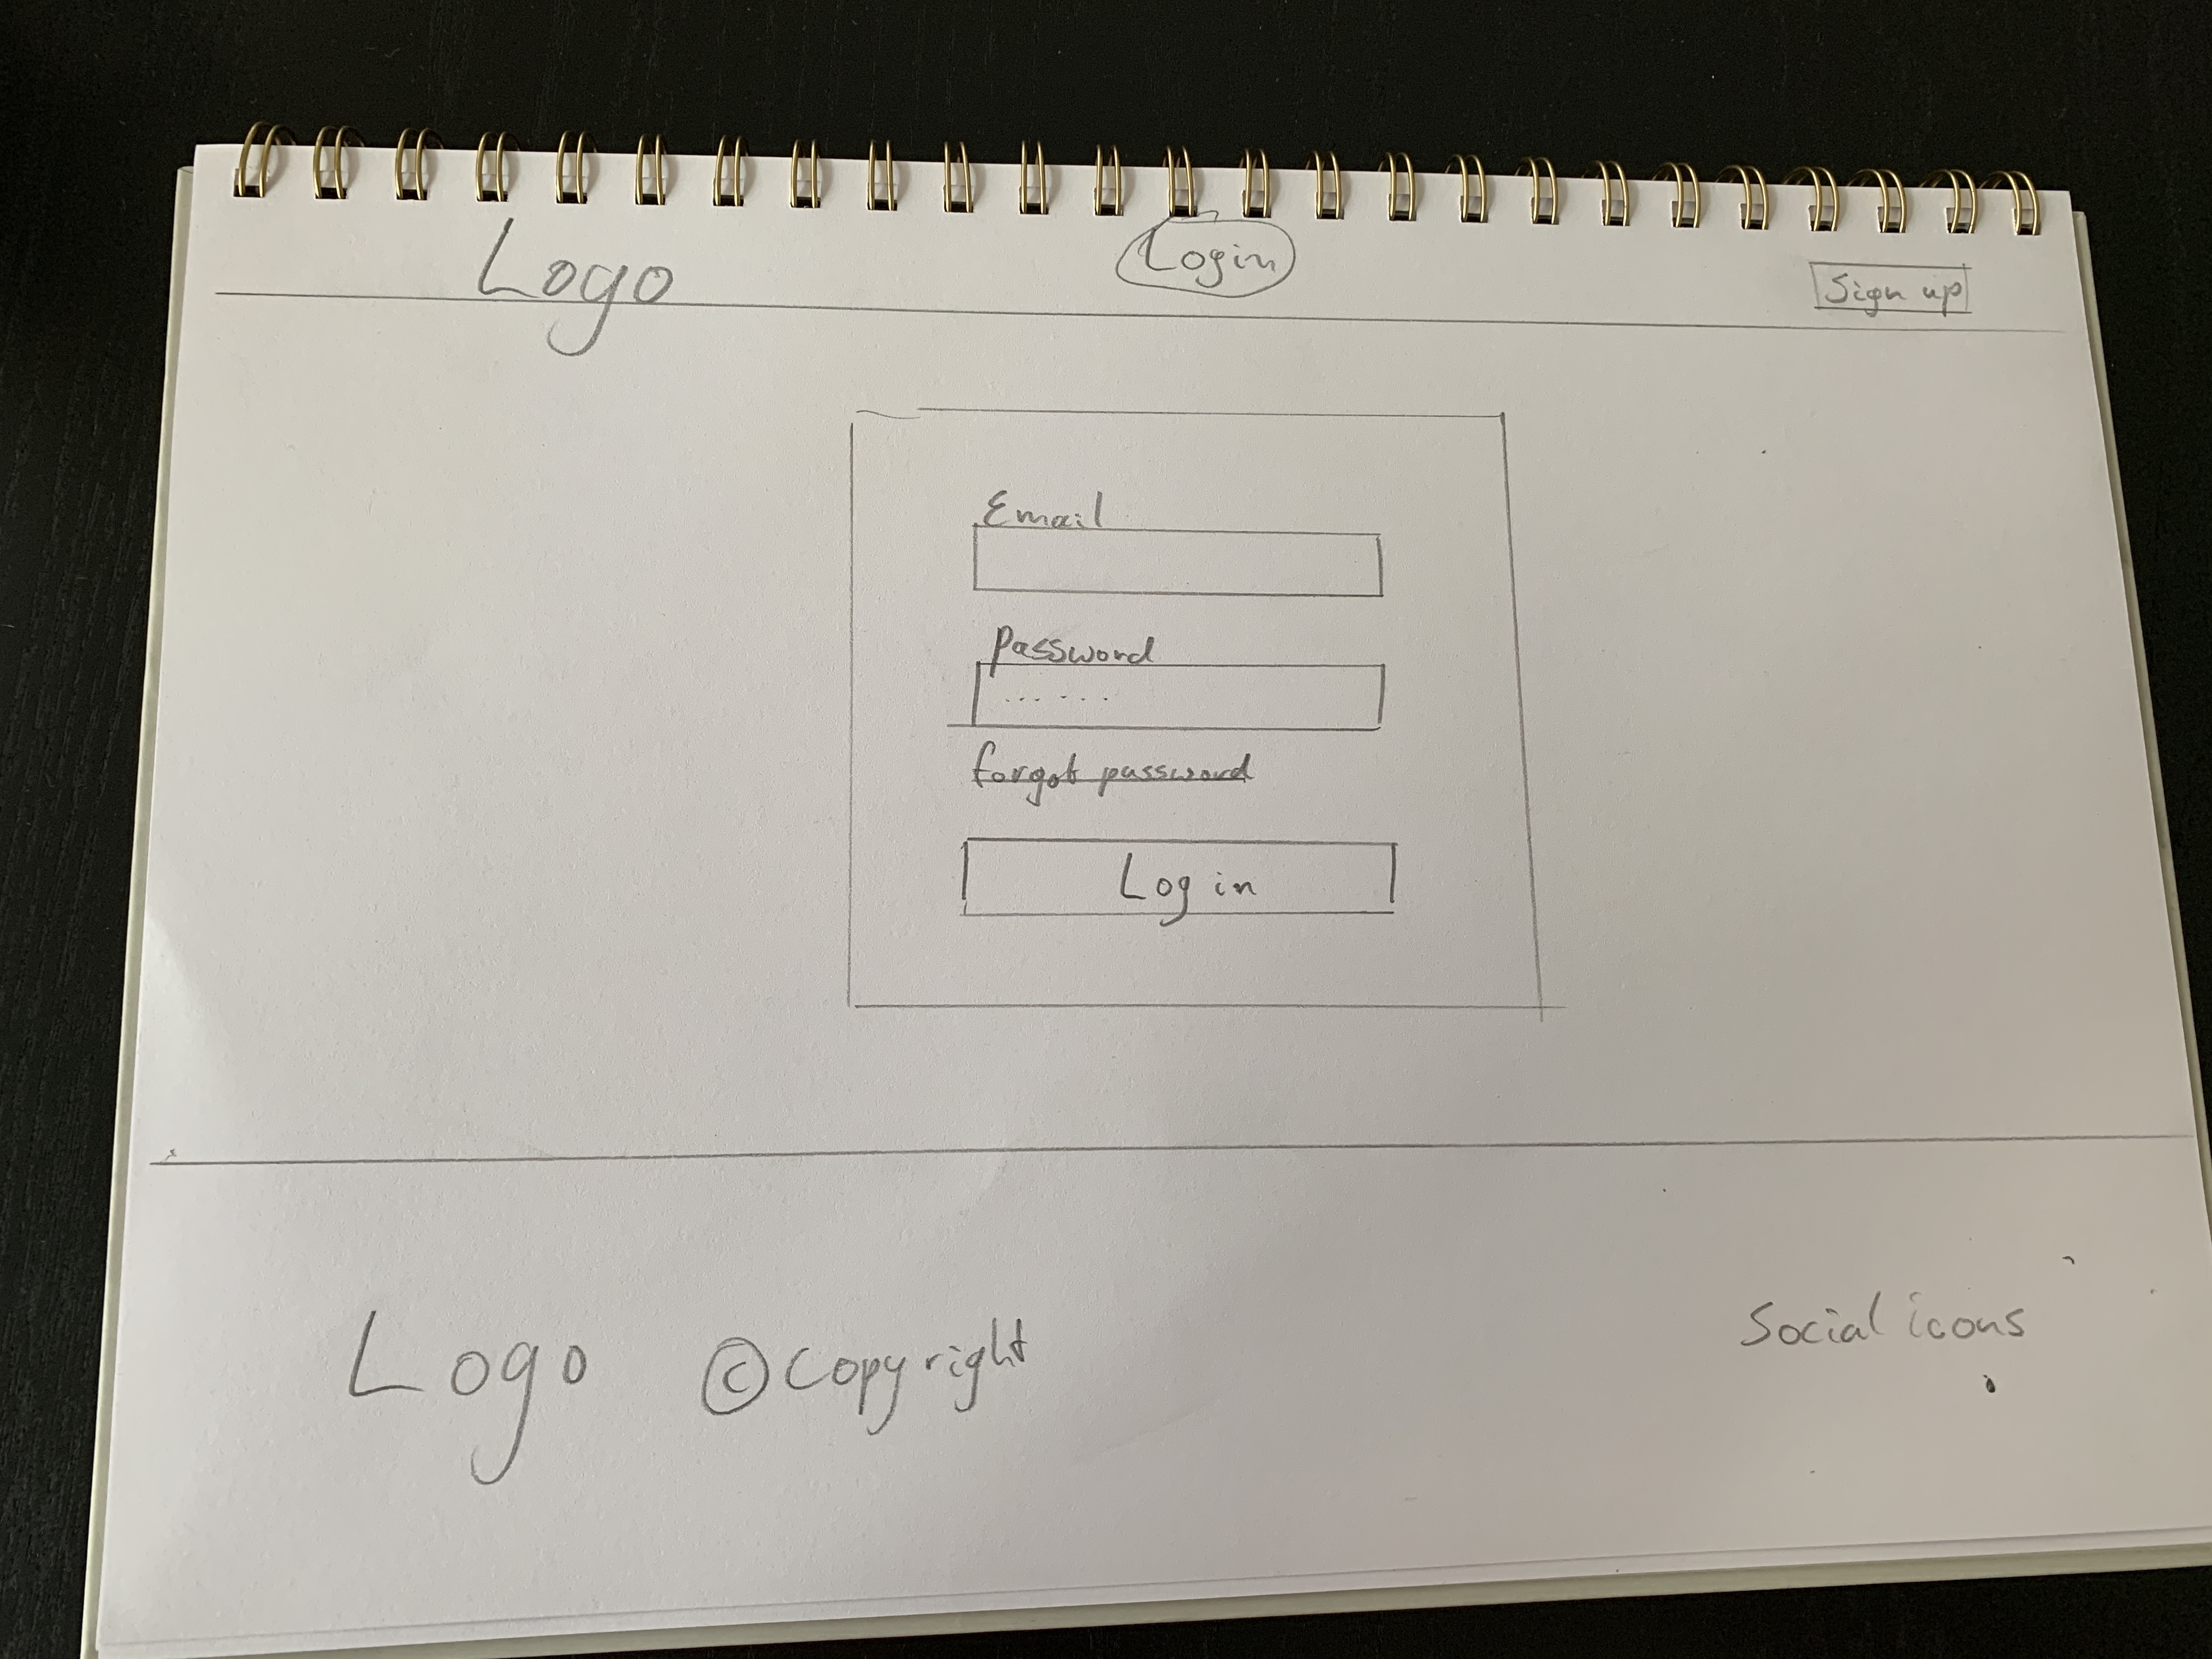 Logo
Login
Sign up
Email
Password
......
forgot password
Log in
Logo
© Copyright
Social icons